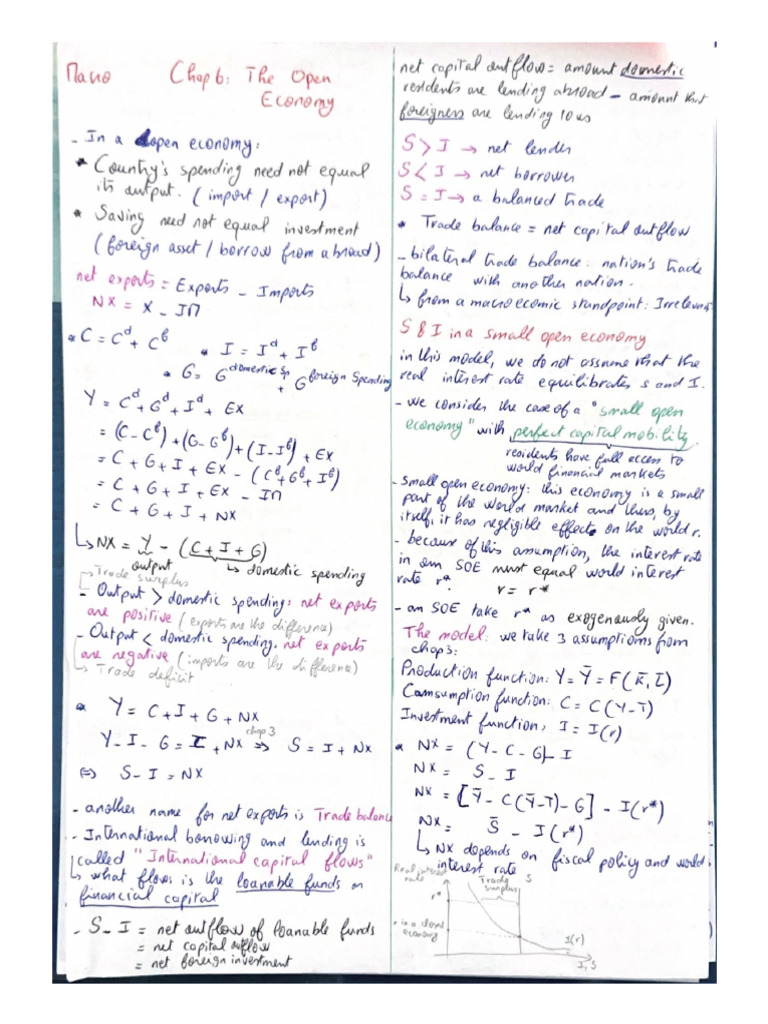 Macro Chap 6: The Open
Economy
- In a open economy:
* Country's spending need not equal
its output. (import / export)
* Saving need not equal investment
(foreign asset / borrow from abroad)
net exports = Exports - Imports
NX = X - IM
* C = Cᵈ + Cᶠ * I = Iᵈ + Iᶠ
* G = G domestic Sp + G foreign Spending
Y = Cᵈ + Gᵈ + Iᵈ + EX
= (C - Cᶠ) + (G - Gᶠ) + (I - Iᶠ) + EX
= C + G + I + EX - (Cᶠ + Gᶠ + Iᶠ)
= C + G + I + EX - IM
= C + G + I + NX
↳ NX = Y - (C + I + G)
output ↳ domestic spending
↳ Trade surplus
- Output > domestic spending: net exports
are positive (exports are the difference)
- Output < domestic spending. net exports
are negative (imports are the difference)
↳ Trade deficit
* Y = C + I + G + NX
Y - I - G = I + NX chap 3 ⇒ S = I + NX
⇔ S - I = NX
- another name for net exports is Trade balance
- International borrowing and lending is
called "International capital flows"
↳ what flows is the loanable funds or
financial capital
- S - I = net outflow of loanable funds
= net capital outflow
= net foreign investment
net capital outflow = amount domestic
residents are lending abroad - amount that
foreigners are lending to us
S > I → net lender
S < I → net borrower
S = I → a balanced trade
* Trade balance = net capital outflow
- bilateral trade balance: nation's trade
balance with another nation.
↳ from a macroecomic standpoint: Irrelevant
S & I in a small open economy
in this model, we do not assume that the
real interest rate equilibrates S and I.
- we consider the case of a "small open
economy" with perfect capital mobility.
residents have full access to
world financial markets
- Small open economy: this economy is a small
part of the world market and thus, by
itself, it has negligible effects on the world r.
- because of this assumption, the interest rate
in an SOE must equal world interest
rate r*. r = r*
- an SOE take r* as exogenously given.
The model: we take 3 assumptions from
chap 3:
Production function: Y = Ȳ = F(K̄, L̄)
Comsumption function: C = C(Y-T)
Investment function: I = I(r)
* NX = (Y - C - G) - I
NX = S - I
NX = [Ȳ - C(Ȳ-T) - G] - I(r*)
NX = S̄ - I(r*)
↳ NX depends on fiscal policy and world
interest rate
Real interest
rate
Trade
surplus
S
r*
r in a closed
economy
I(r)
I, S